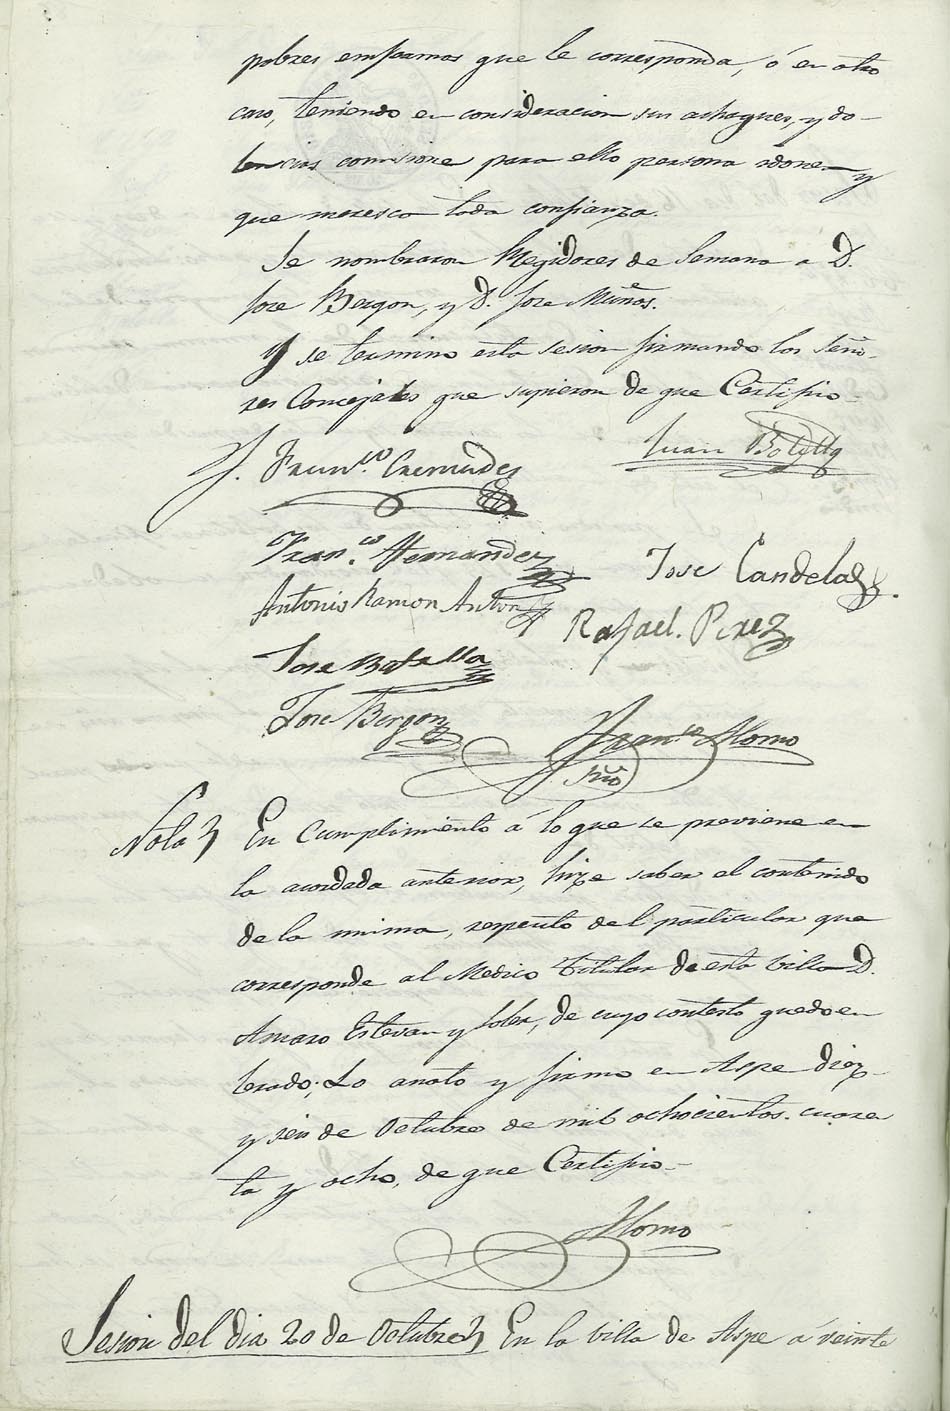 pobres enfermos que le corresponda, ó en otro
caso, teniendo en consideracion sus achaques, y do-
lencias comisione para ello persona idonea y
que meresca toda confianza.
Se nombraron Regidores de Semana a D.
Jose Bergon, y D. Jose Muños.
Y se termino esta sesion firmando los Seño-
res Concejales que supieron de que Certifico.
Juan Botella
J. Franco. Cremades
Franco. Hernandez
Jose Candela
Antonio Ramon Anton
Rafael. Perez
Jose Botella
Jose Bergon
Franco Alonso
Srio
Nota En Cumplimiento á lo que se previene en
la acordada anterior, hize saber el contenido
de la misma, respecto del particular que
corresponde al Medico Titular de esta villa D.
Amaro Estevan y Soler, de cuyo contesto quedo en
terado; Lo anoto y firmo en Aspe diez
y seis de Octubre de mil ochocientos. cuaren
ta y ocho, de que Certifico.
Alonso
Sesion del dia 20 de Octubre En la villa de Aspe á veinte